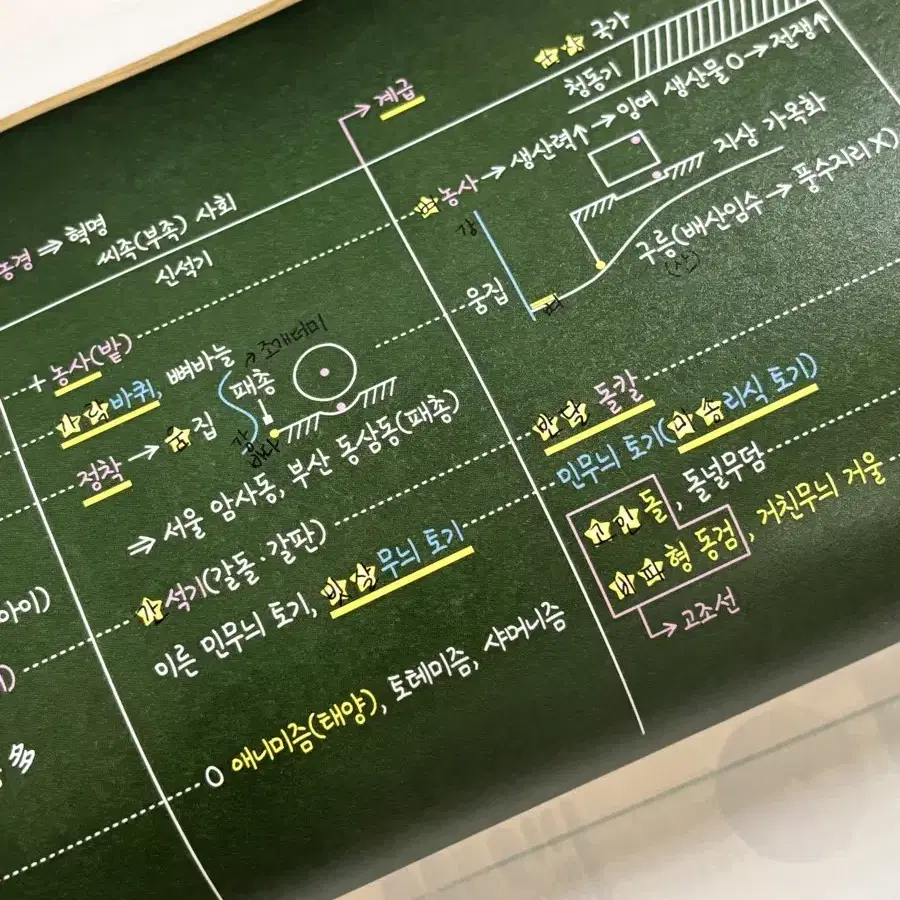 국가
청동기
→ 계급
벼농사 → 생산력↑ → 잉여 생산물 O → 전쟁↑
지상 가옥화
강
구릉(배산임수 → 풍수지리X)
산
움집
농경 ⇒ 혁명
씨족(부족) 사회
신석기
+ 농사(밭)
가락바퀴, 뼈바늘
→ 조개더미
패총
정착 → 움집
강
바다
⇒ 서울 암사동, 부산 동삼동(패총)
간석기(갈돌·갈판)
이른 민무늬 토기, 빗살무늬 토기
O 애니미즘(태양), 토테미즘, 샤머니즘
반달 돌칼
민무늬 토기(미송리식 토기)
고인돌, 돌널무덤
비파형 동검, 거친무늬 거울
→ 고조선
아이)
多